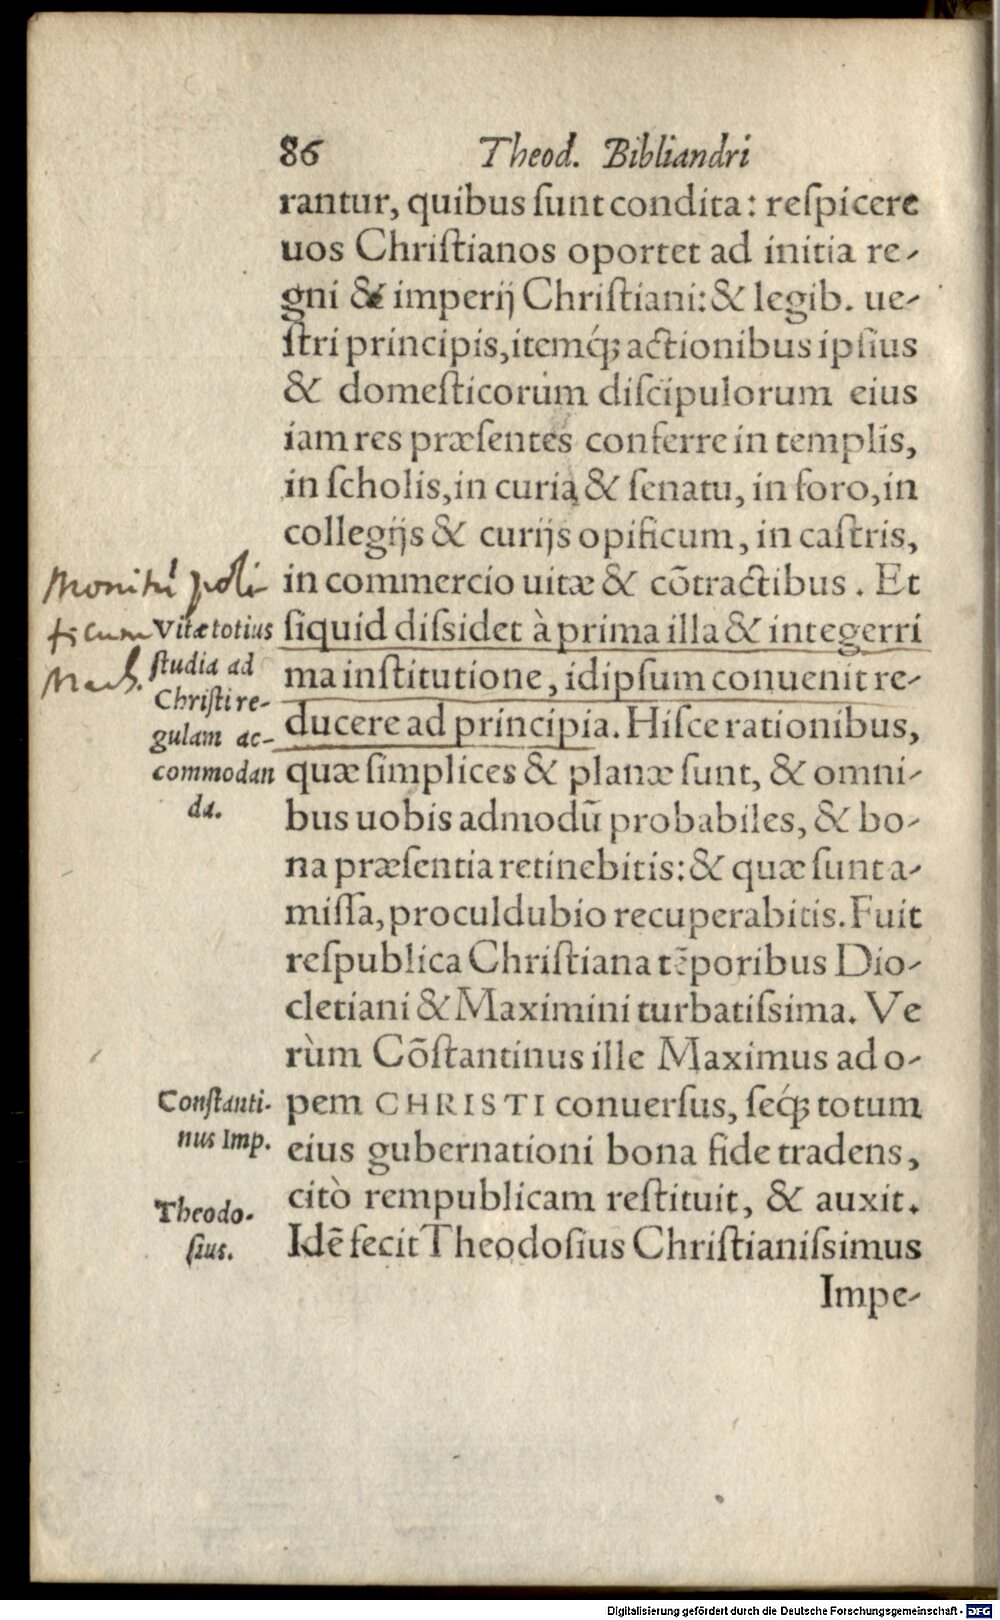 86 Theod. Bibliandri
rantur, quibus ſunt condita: reſpicere
uos Chriſtianos oportet ad initia re-
gni & imperij Chriſtiani: & legib. ue-
ſtri principis, itemq́; actionibus ipſius
& domeſticorum diſcipulorum eius
iam res præſentes conferre in templis,
in ſcholis, in curia & ſenatu, in foro, in
collegijs & curijs opificum, in caſtris,
in commercio uitæ & cõtractibus. Et
ſiquid diſsidet à prima illa & integerri
ma inſtitutione, id ipſum conuenit re-
ducere ad principia. Hiſce rationibus,
quæ ſimplices & planæ ſunt, & omni-
bus uobis admodũ probabiles, & bo-
na præſentia retinebitis: & quæ ſunt a-
miſſa, proculdubio recuperabitis. Fuit
reſpublica Chriſtiana tẽporibus Dio-
cletiani & Maximini turbatiſsima. Ve
rùm Cõſtantinus ille Maximus ad o-
pem CHRISTI conuerſus, ſeq́; totum
eius gubernationi bona fide tradens,
citò rempublicam reſtituit, & auxit.
Idẽ fecit Theodoſius Chriſtianiſsimus
Impe-
poli-
ticum
Mach.
Vitæ totius
ſtudia ad
Chriſti re-
gulam ac-
commodan
da.
Conſtanti-
nus Imp.
Theodo-
ſius.
Digitalisierung gefördert durch die Deutsche Forschungsgemeinschaft - DFG